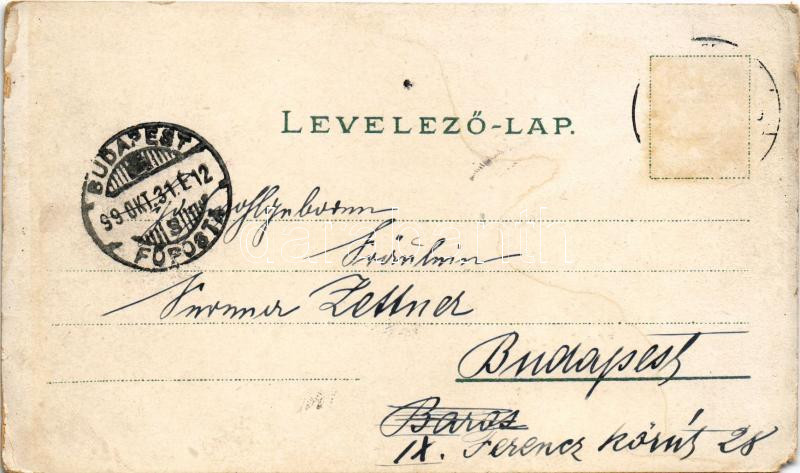 LEVELEZŐ-LAP.
BUDAPEST
99 OKT. 31. E 12
FŐPOSTA
Wohlgeboren
Fräulein
Zettner
Budapest
Baross
IX. Ferencz körút 28